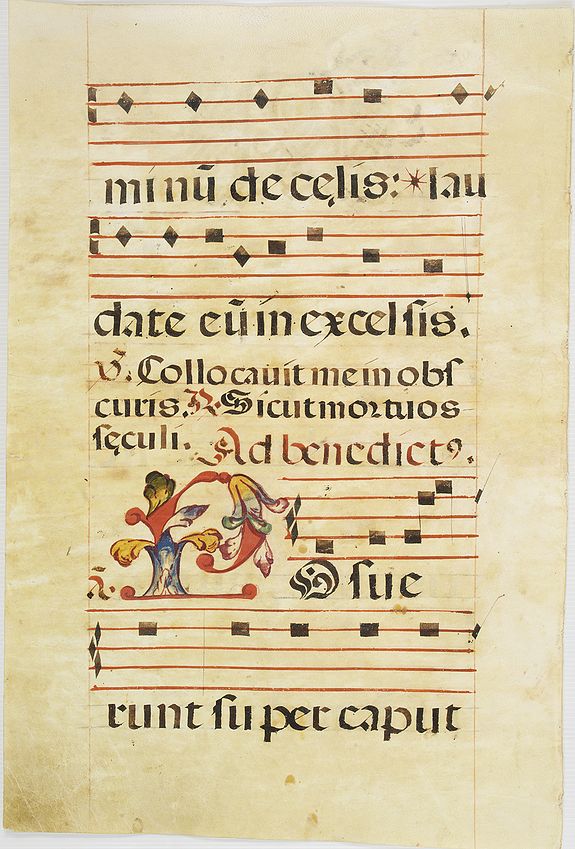 minū de cęlis: * lau
date eū in excelsis.
V̄. Collocauit me in obſ
curis. R. Sicut mortuos
sęculi. Ad benedictꝰ.
ā. POſue
runt ſuper caput